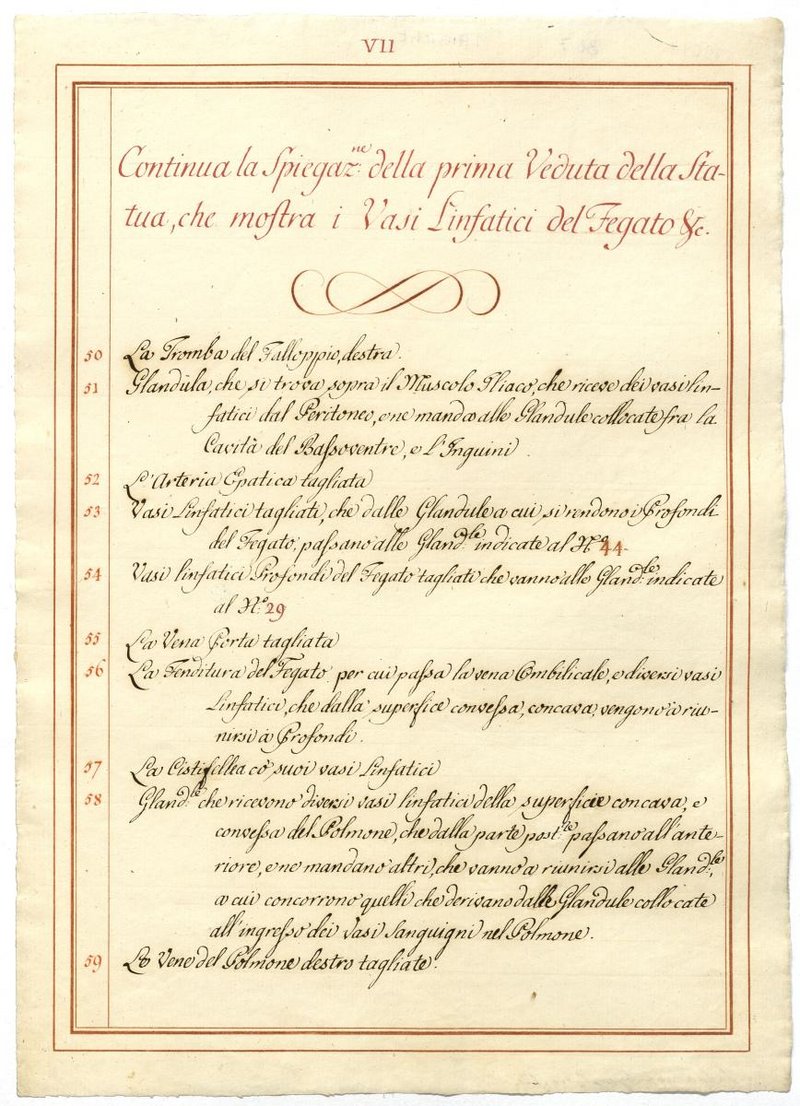 VII
Continua la Spiegaz.ne della prima Veduta della Sta-
tua, che mostra i Vasi Linfatici del Fegato &c.
50 La Tromba del Falloppio, destra.
51 Glandula, che si trova sopra il Muscolo Iliaco, che riceve dei vasi lin-
fatici dal Peritoneo, e ne manda alle Glandule collocate fra la
Cavità del Bassoventre, e l'Inguini.
52 L'Arteria Epatica tagliata
53 Vasi Linfatici tagliati, che dalle Glandule a cui si rendono i Profondi
del Fegato, passano alle Gland.le indicate al N.o 44.
54 Vasi linfatici Profondi del Fegato tagliati che vanno alle Gland.le indicate
al N.o 29
55 La Vena Porta tagliata
56 La Fenditura del Fegato per cui passa la vena Ombilicale, e diversi vasi
Linfatici, che dalla superfice convessa, concava, vengono a riu-
nirsi à Profondi.
57 La Cistifellea cò suoi vasi Linfatici
58 Gland.le che ricevono diversi vasi linfatici della superficie concava, e
convessa del Polmone, che dalla parte post.le passano all'ante-
riore, e ne mandano altri, che vanno a riunirsi alle Gland.le,
a cui concorrono quelli che derivano dalle Glandule collocate
all'ingresso dei Vasi Sanguigni nel Polmone.
59 Le Vene del Polmone destro tagliate.